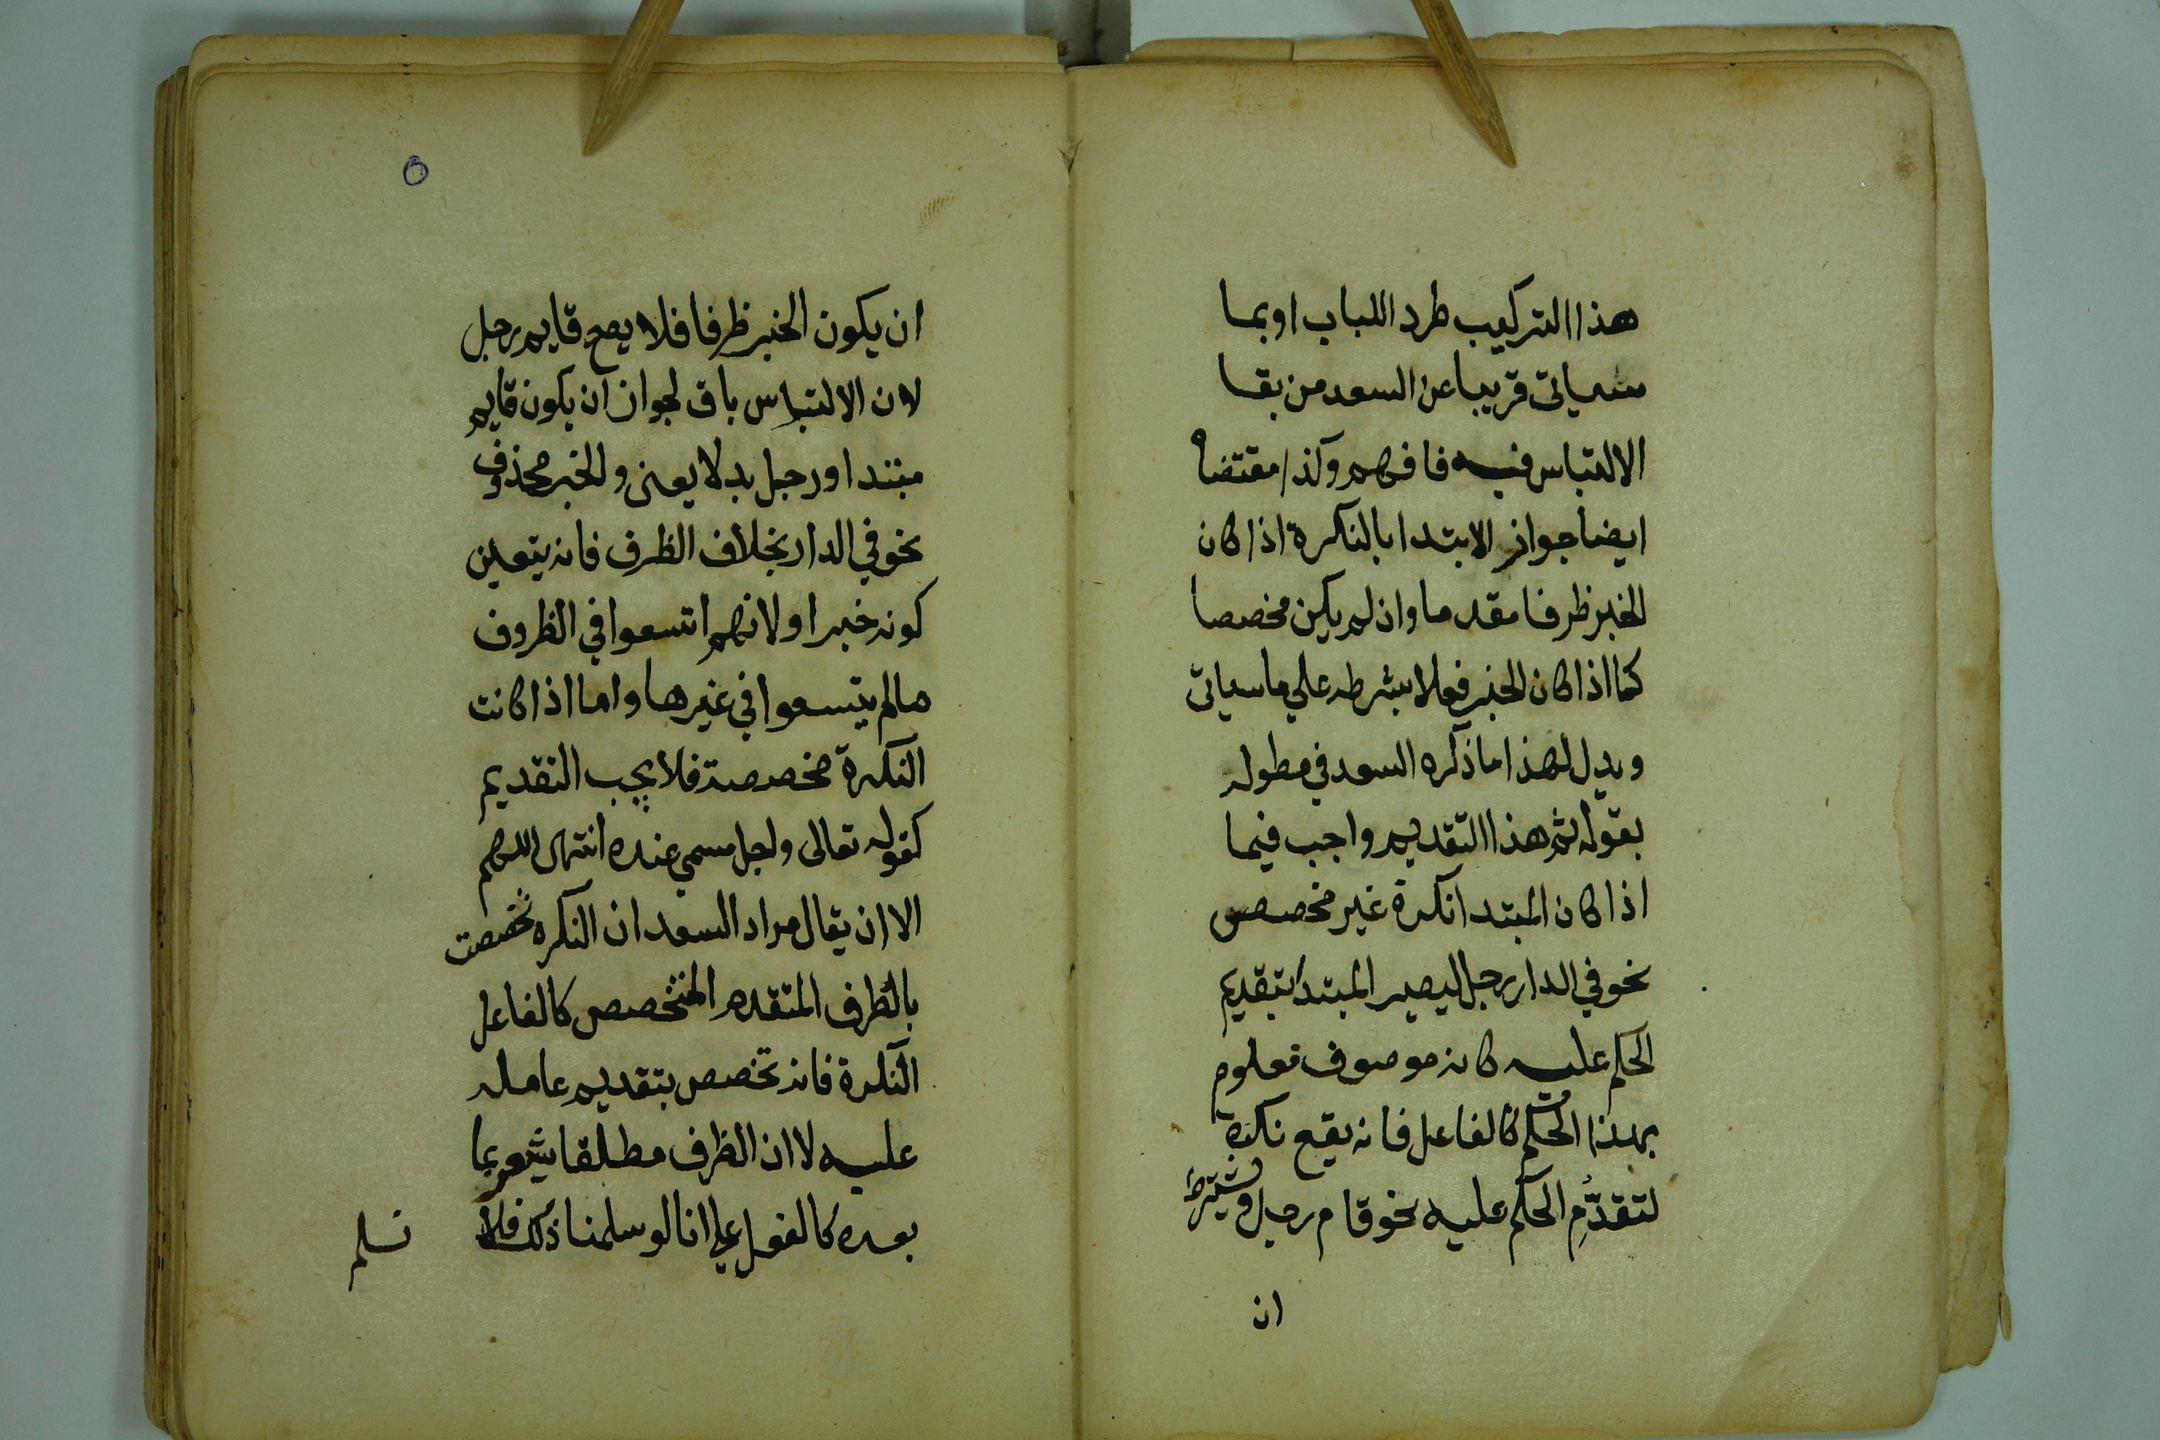 هذا التركيب طرد اللباب او بما
سياتي قريبا عن السعد من بقا
الالتباس فيه فافهم وكذا مقتضاه
ايضا جواز الابتدا بالنكرة اذا كان
الخبر ظرفا مقدما وان لم يكن مخصصا
كما اذا كان الخبر فعلا بشرطه علي ما سياتي
ويدل لهذا ما ذكره السعد في مطوله
بقوله ثم هذا التقديم واجب فيما
اذا كان المبتدا نكرة غير مخصص
نحو في الدار رجل ليصير المبتدا بتقديم
الحكم عليه كانه موصوف معلوم
بهذا الحكم كالفاعل فانه يقع نكرة
لتقدُّمِ الحكم عليه نحو قام رجل ويشترط
ان
ان يكون الخبر ظرفا فلا يصح قايم رجل
لان الالتباس باق لجواز ان يكون قايم
مبتدا ورجل بدلا يعني والخبر محذوف
نحو في الدار بخلاف الظرف فانه يتعين
كونه خبرا ولانهم اتسعوا في الظروف
مالم يتسعوا في غيرها واما اذا كانت
النكرة مخصصة فلا يجب التقديم
كقوله تعالى واجل مسمي عنده انتهى اللهم
الا ان يقال مراد السعد ان النكره تخصصت
بالظرف المتقدم المختصص كالفاعل
النكرة فانه تخصص بتقديم عامله
عليه لا ان الظرف مطلقا يشعر بما
بعده كالفعل علي انا لو سلمنا ذلك فلا
نسلم